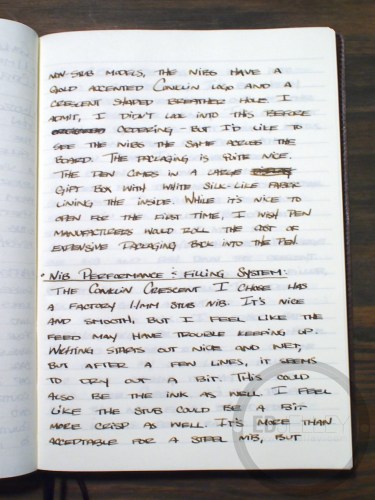 NON STUB MODELS, THE NIBS HAVE A
GOLD ACCENTED CONKLIN LOGO AND A
CRESCENT SHAPED BREATHER HOLE. I
ADMIT, I DIDN'T LOOK INTO THIS BEFORE
ORDERING BUT I'D LIKE TO
SEE THE NIBS THE SAME ACROSS THE
BOARD. THE PACKAGING IS QUITE NICE.
THE PEN COMES IN A LARGE
GIFT BOX WITH WHITE SILK-LIKE FABRIC
LINING THE INSIDE. WHILE IT'S NICE TO
OPEN FOR THE FIRST TIME, I WISH PEN
MANUFACTURERS WOULD ROLL THE COST OF
EXPENSIVE PACKAGING BACK INTO THE PEN.
NIB PERFORMANCE & FILLING SYSTEM:
THE CONKLIN CRESCENT I CHOSE HAS
A FACTORY 1.1MM STUB NIB. IT'S NICE
AND SMOOTH, BUT I FEEL LIKE THE
FEED MAY HAVE TROUBLE KEEPING UP.
WRITING STARTS OUT NICE AND WET,
BUT AFTER A FEW LINES, IT SEEMS
TO DRY OUT A BIT. THIS COULD
ALSO BE THE INK AS WELL. I FEEL
LIKE THE STUB COULD BE A BIT
MORE CRISP AS WELL. IT'S MORE THAN
ACCEPTABLE FOR A STEEL NIB, BUT